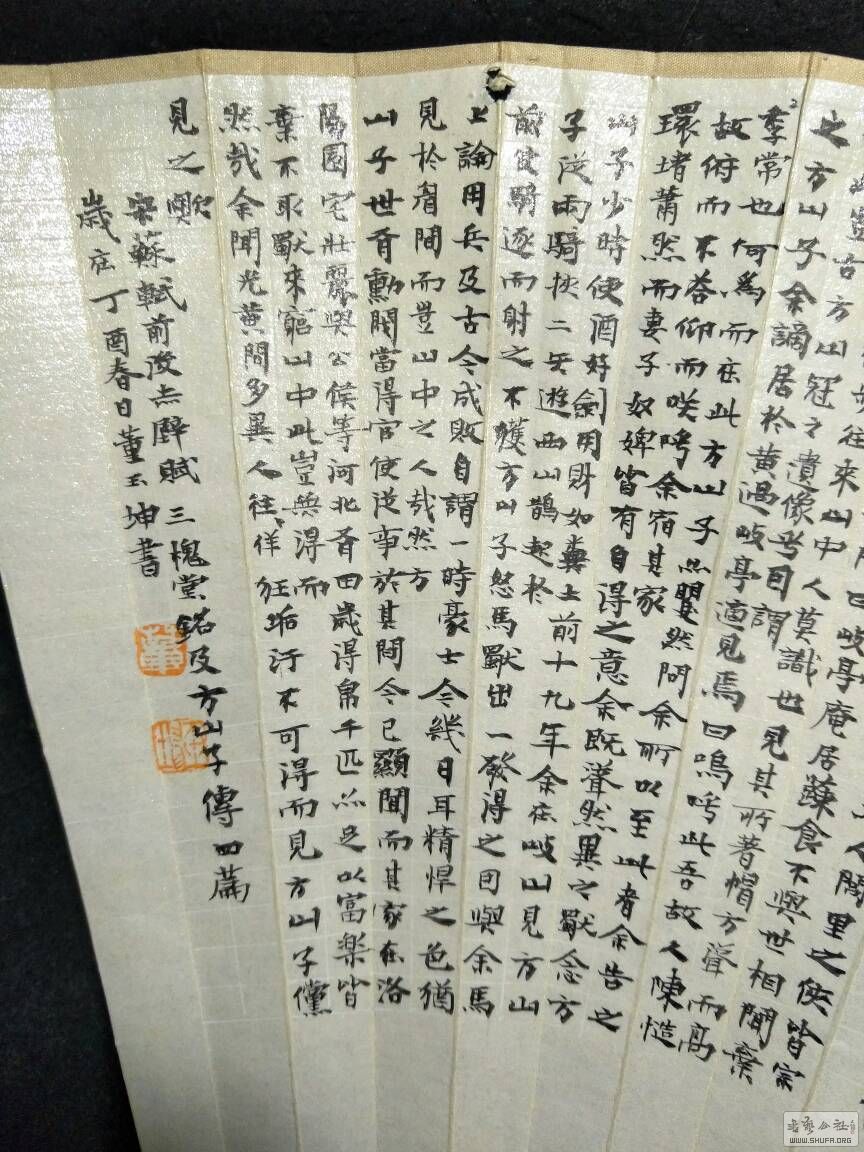 人閭里之俠皆宗
曰岐亭庵居蔬食不與世相聞棄
往來山中人莫識也見其所著帽方聳而高
豈古方山冠之遺像乎因謂
之方山子余謫居於黃過岐亭適見焉曰嗚呼此吾故人陳慥
季常也何為而在此方山子亦矍然問余所以至此者余告之
故俯而不答仰而咲呼余宿其家
環堵蕭然而妻子奴婢皆有自得之意余既聳然異之獸念方
山子少時使酒好劍用財如糞土前十九年余在岐山見方山
子從兩騎挾二矢遊西山鵲起於
前使騎逐而射之不獲方山子怒馬獸出一發得之因與余馬
上論用兵及古今成敗自謂一時豪士今幾日耳精悍之色猶
見於眉間而豈山中之人哉然方
山子世有勳閥當得官使從事於其間今已顯聞而其家在洛
陽園宅壯麗與公侯等河北有田歲得帛千匹亦足以富樂皆
棄不取獸來窮山中此豈無得而
然哉余聞光黃間多異人往往佯狂垢汙不可得而見方山子儻
見之歟
宋蘇軾前後赤壁賦三槐堂銘及方山子傳四篇
歲在丁酉春日董玉坤書
WWW.SHUFA.ORG